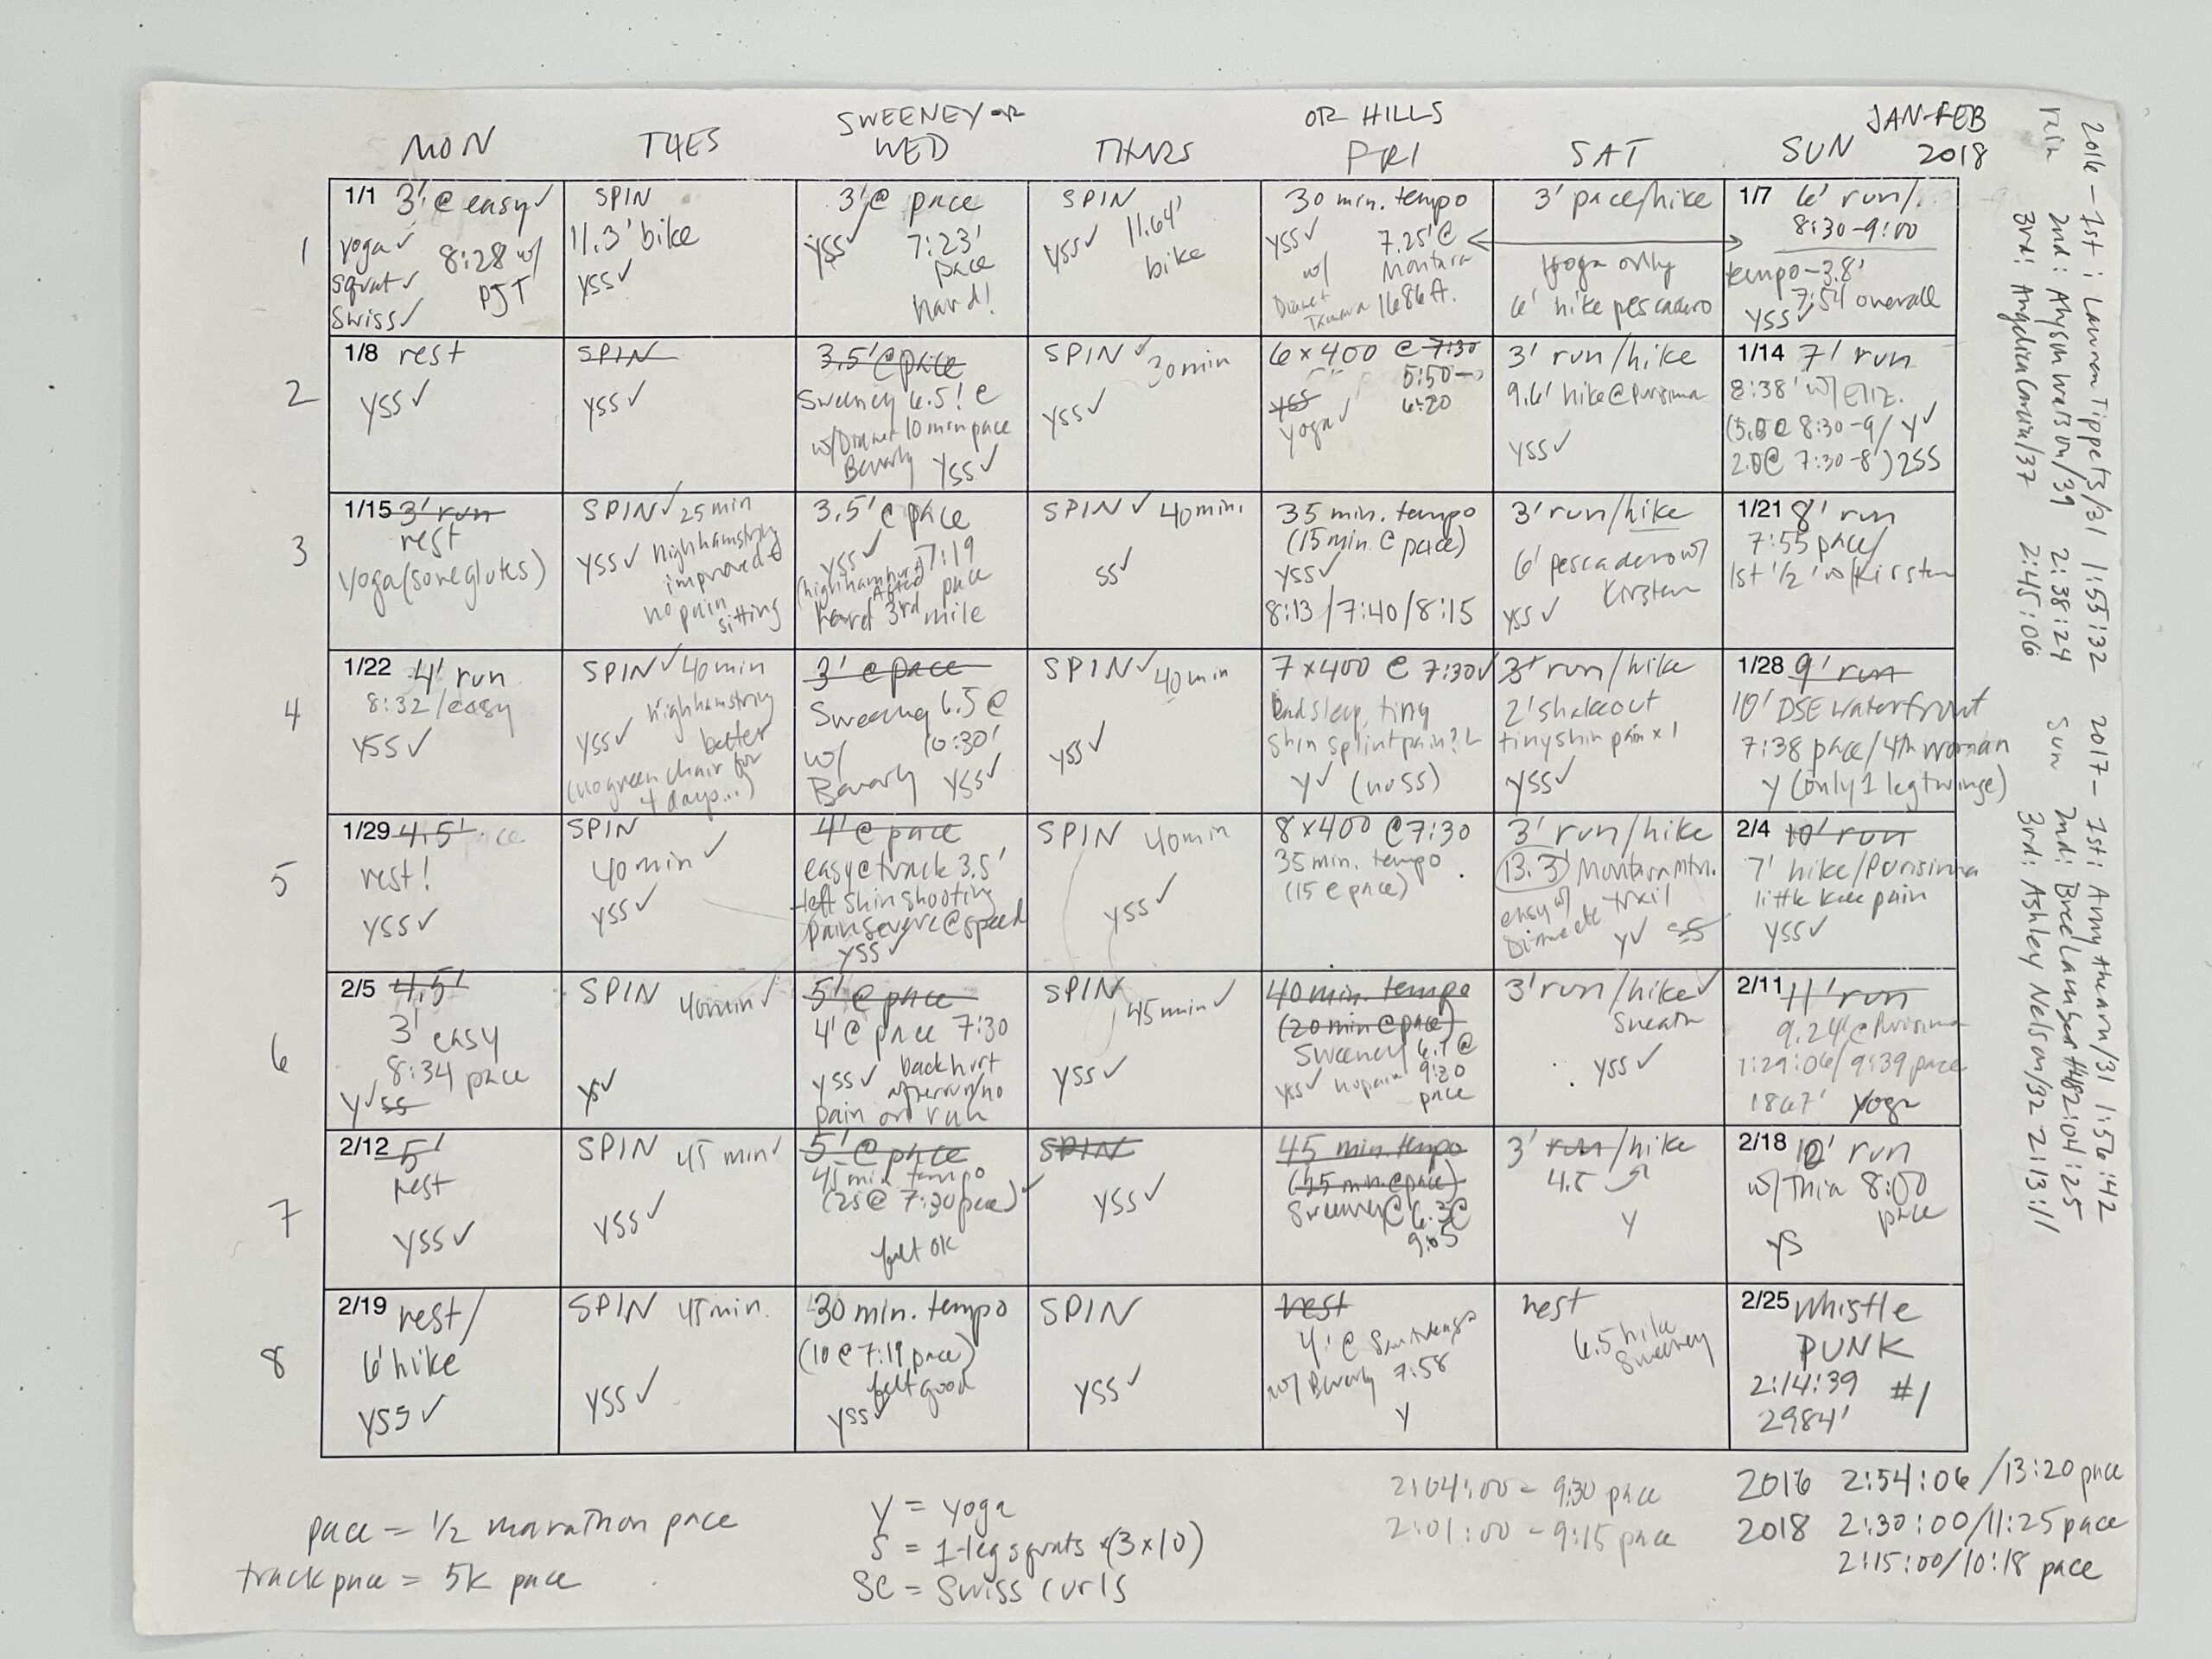 JAN-FEB
2018
MON
TUES
SWEENEY OR
WED
THURS
OR HILLS
FRI
SAT
SUN
1
1/1 3' @ easy ✓
yoga ✓ 8:28 w/
squat ✓ PJT
Swiss ✓
SPIN
11.3' bike
YSS ✓
3' @ pace
YSS ✓ 7:23'
pace
hard!
SPIN
YSS ✓ 11.64'
bike
30 min. tempo
YSS ✓ 7.25' @
w/ Montara
Tamara 1686 ft.
3' pace/hike
yoga only
6' hike pescadero
1/7 6' run/
8:30-9:00
tempo-3.8'
7:54 overall
YSS ✓
2
1/8 rest
YSS ✓
SPIN
YSS ✓
3.5' @ pace
Sweeney 6.5! @
w/ 10 min pace
Beverly YSS ✓
SPIN ✓ 30 min
YSS ✓
6 x 400 @ 7:30
5:50-
YSS 6:20
yoga ✓
3' run/hike
9.6' hike @ Purisima
YSS ✓
1/14 7' run
8:38' w/ ELIZ.
(5.0 @ 8:30-9/ Y ✓
2.0 @ 7:30-8') 2SS
3
1/15 3' run
rest
yoga (sore glutes)
SPIN ✓ 25 min
YSS ✓ high hamstring
improved
no pain
sitting
3.5' @ pace
YSS ✓ 7:19
pace
hard 3rd mile
SPIN ✓ 40 min.
SS ✓
35 min. tempo
(15 min. @ pace)
YSS ✓
8:13/7:40/8:15
3' run/hike
6' pescadero w/
Kirsten
YSS ✓
1/21 8' run
7:55 pace/
1st 1/2 w/ Kirsten
4
1/22 4' run
8:32/easy
YSS ✓
SPIN ✓ 40 min
high hamstring
YSS ✓ better
(no green chair for
4 days...)
3' @ pace
Sweeney 6.5 @
w/ 10:30'
Beverly YSS ✓
SPIN ✓ 40 min
YSS ✓
7 x 400 @ 7:30 ✓
bad sleep, tiny
shin splint pain? L
Y ✓ (no SS)
3' run/hike
2' shakeout
tiny shin pain x 1
YSS ✓
1/28 9' run
10' DSE Waterfront
7:38 pace/4th woman
Y (only 1 leg twinge)
5
1/29 4.5'
rest!
YSS ✓
SPIN
40 min ✓
YSS ✓
4' @ pace
easy @ track 3.5'
left shin shooting
pain severe @ speed
YSS ✓
SPIN 40 min
YSS ✓
8 x 400 @ 7:30
35 min. tempo
(15 @ pace)
3' run/hike
13.3' Montara Mtn.
easy w/ trail
Y ✓ SS
2/4 10' run
7' hike/Purisima
little knee pain
YSS ✓
6
2/5 4.5'
3' easy
8:34 pace
Y ✓ SS
SPIN 40 min ✓
YS ✓
5' @ pace
4' @ pace 7:30
YSS ✓ back hurt
after run/no
pain on run
SPIN 45 min ✓
YSS ✓
40 min. tempo
(20 min @ pace)
Sweeney 6.1 @
YSS ✓ no pain 9:20
pace
3' run/hike ✓
YSS ✓
2/11 11' run
9.24' @ Purisima
1:29:06/9:39 pace
1867' yoga
7
2/12 5'
rest
YSS ✓
SPIN 45 min ✓
YSS ✓
5' @ pace
45 min tempo
(25 @ 7:30 pace) ✓
felt OK
SPIN
YSS ✓
45 min. tempo
(25 min. @ pace)
Sweeney @ 6.3 @
9:05
3' run/hike
4.5
Y
2/18 10' run
w/ Thia 8:00
pace
YS
8
2/19 rest/
6' hike
YSS ✓
SPIN 45 min.
YSS ✓
30 min. tempo
(10 @ 7:19 pace)
felt good
YSS ✓
SPIN
YSS ✓
rest
4' @
w/ Beverly 7:58
Y
rest
6.5 hike
Sweeney
2/25 Whistle
PUNK
2:14:39 #1
2984'
pace = 1/2 marathon pace
track pace = 5K pace
Y = yoga
S = 1-leg squats (3x10)
SC = Swiss curls
2:04:00 - 9:30 pace
2:01:00 - 9:15 pace
2016 2:54:06/13:20 pace
2018 2:30:00/11:25 pace
2:15:00/10:18 pace
2016 - 1st: Lauren Tippets/31 1:55:32
rain 2nd: Alyson Watson/39 2:38:24
3rd: Angelica /37 2:45:06
2017 - 1st: Amy /31 1:56:42
Sun 2nd: Bree Lambert/48 2:04:25
3rd: Ashley Nelson/32 2:13:11